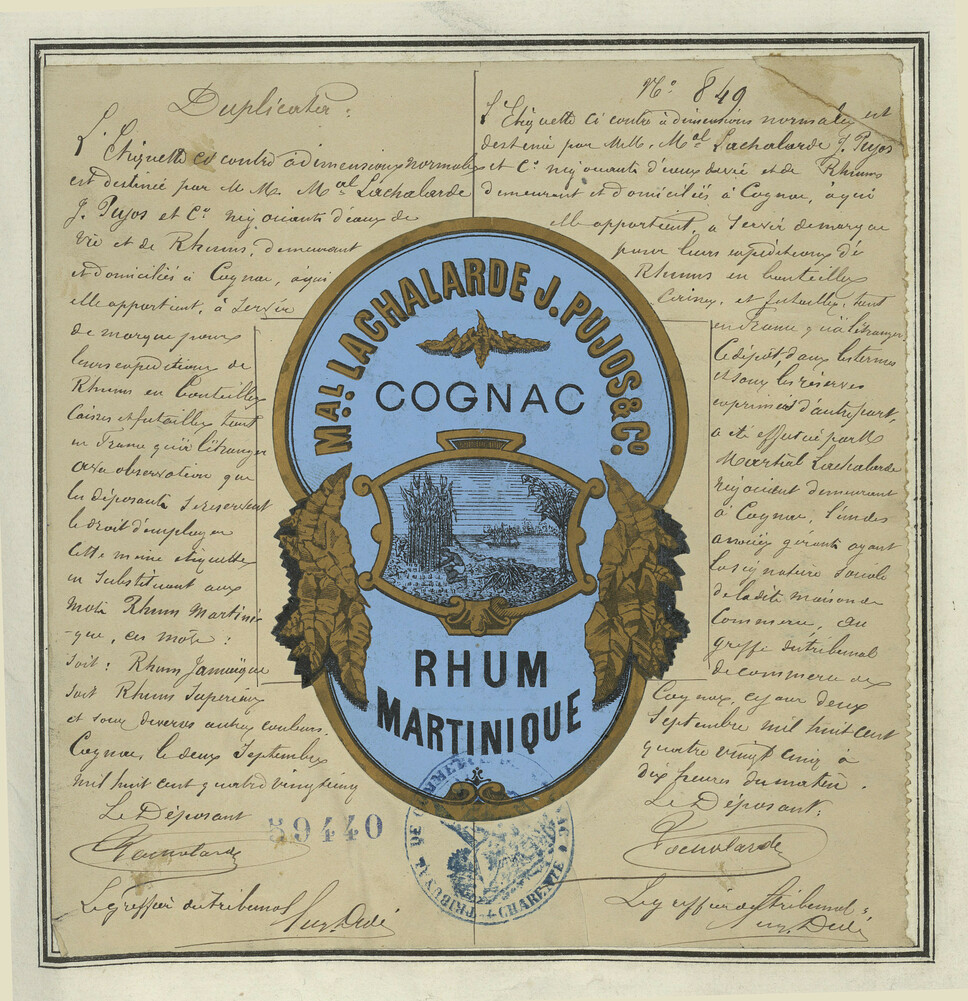 Duplicata :
L'Etiquette ci contre à dimensions normales
est destinée par M M. Mal Lachalarde
J. Pujos et Cie négociants d'eaux de
Vie et de Rhums, demeurant
et domiciliés à Cognac, à qui
elle appartient, à servir
de marque pour
leurs expéditions de
Rhums en bouteilles
caisses et futailles tant
en France qu'à l'étranger
avec observation que
les déposants se reservent
le droit d'employer
cette même étiquette
en substituant aux
mots Rhum Martini
-que, ces mots :
soit : Rhum Jamaïque
soit Rhum Supérieur
et sous diverses autres couleurs.
Cognac, le deux Septembre
mil huit cent quatre vingt cinq
Le Déposant
Lachalarde
Le greffier du tribunal
59440
No. 849
L'Etiquette ci contre à dimensions normales est
destinée par MM. Mal Lachalarde J. Pujos
et Cie négociants d'eaux de vie et de Rhums
demeurant et domiciliés à Cognac, à qui
elle appartient, à servir de marque
pour leurs expéditions de
Rhums en bouteilles
caisses, et futailles, tant
en France qu'à l'étranger
Ce dépôt, dans les termes
et sous les réserves
exprimées d'autre part,
a été effectué par M
Martial Lachalarde
négociant demeurant
à Cognac, l'un des
associés gérants ayant
la signature sociale
de la dite maison de
Commerce, au
greffe du tribunal
de commerce de
Cognac, ce jour deux
Septembre mil huit cent
quatre vingt cinq à
dix heures du matin.
Le Déposant :
Lachalarde
Le greffier du tribunal :
MAL LACHALARDE J. PUJOS & CO.
COGNAC
RHUM
MARTINIQUE
TRIBUNAL DE COMMERCE
CHARENTE